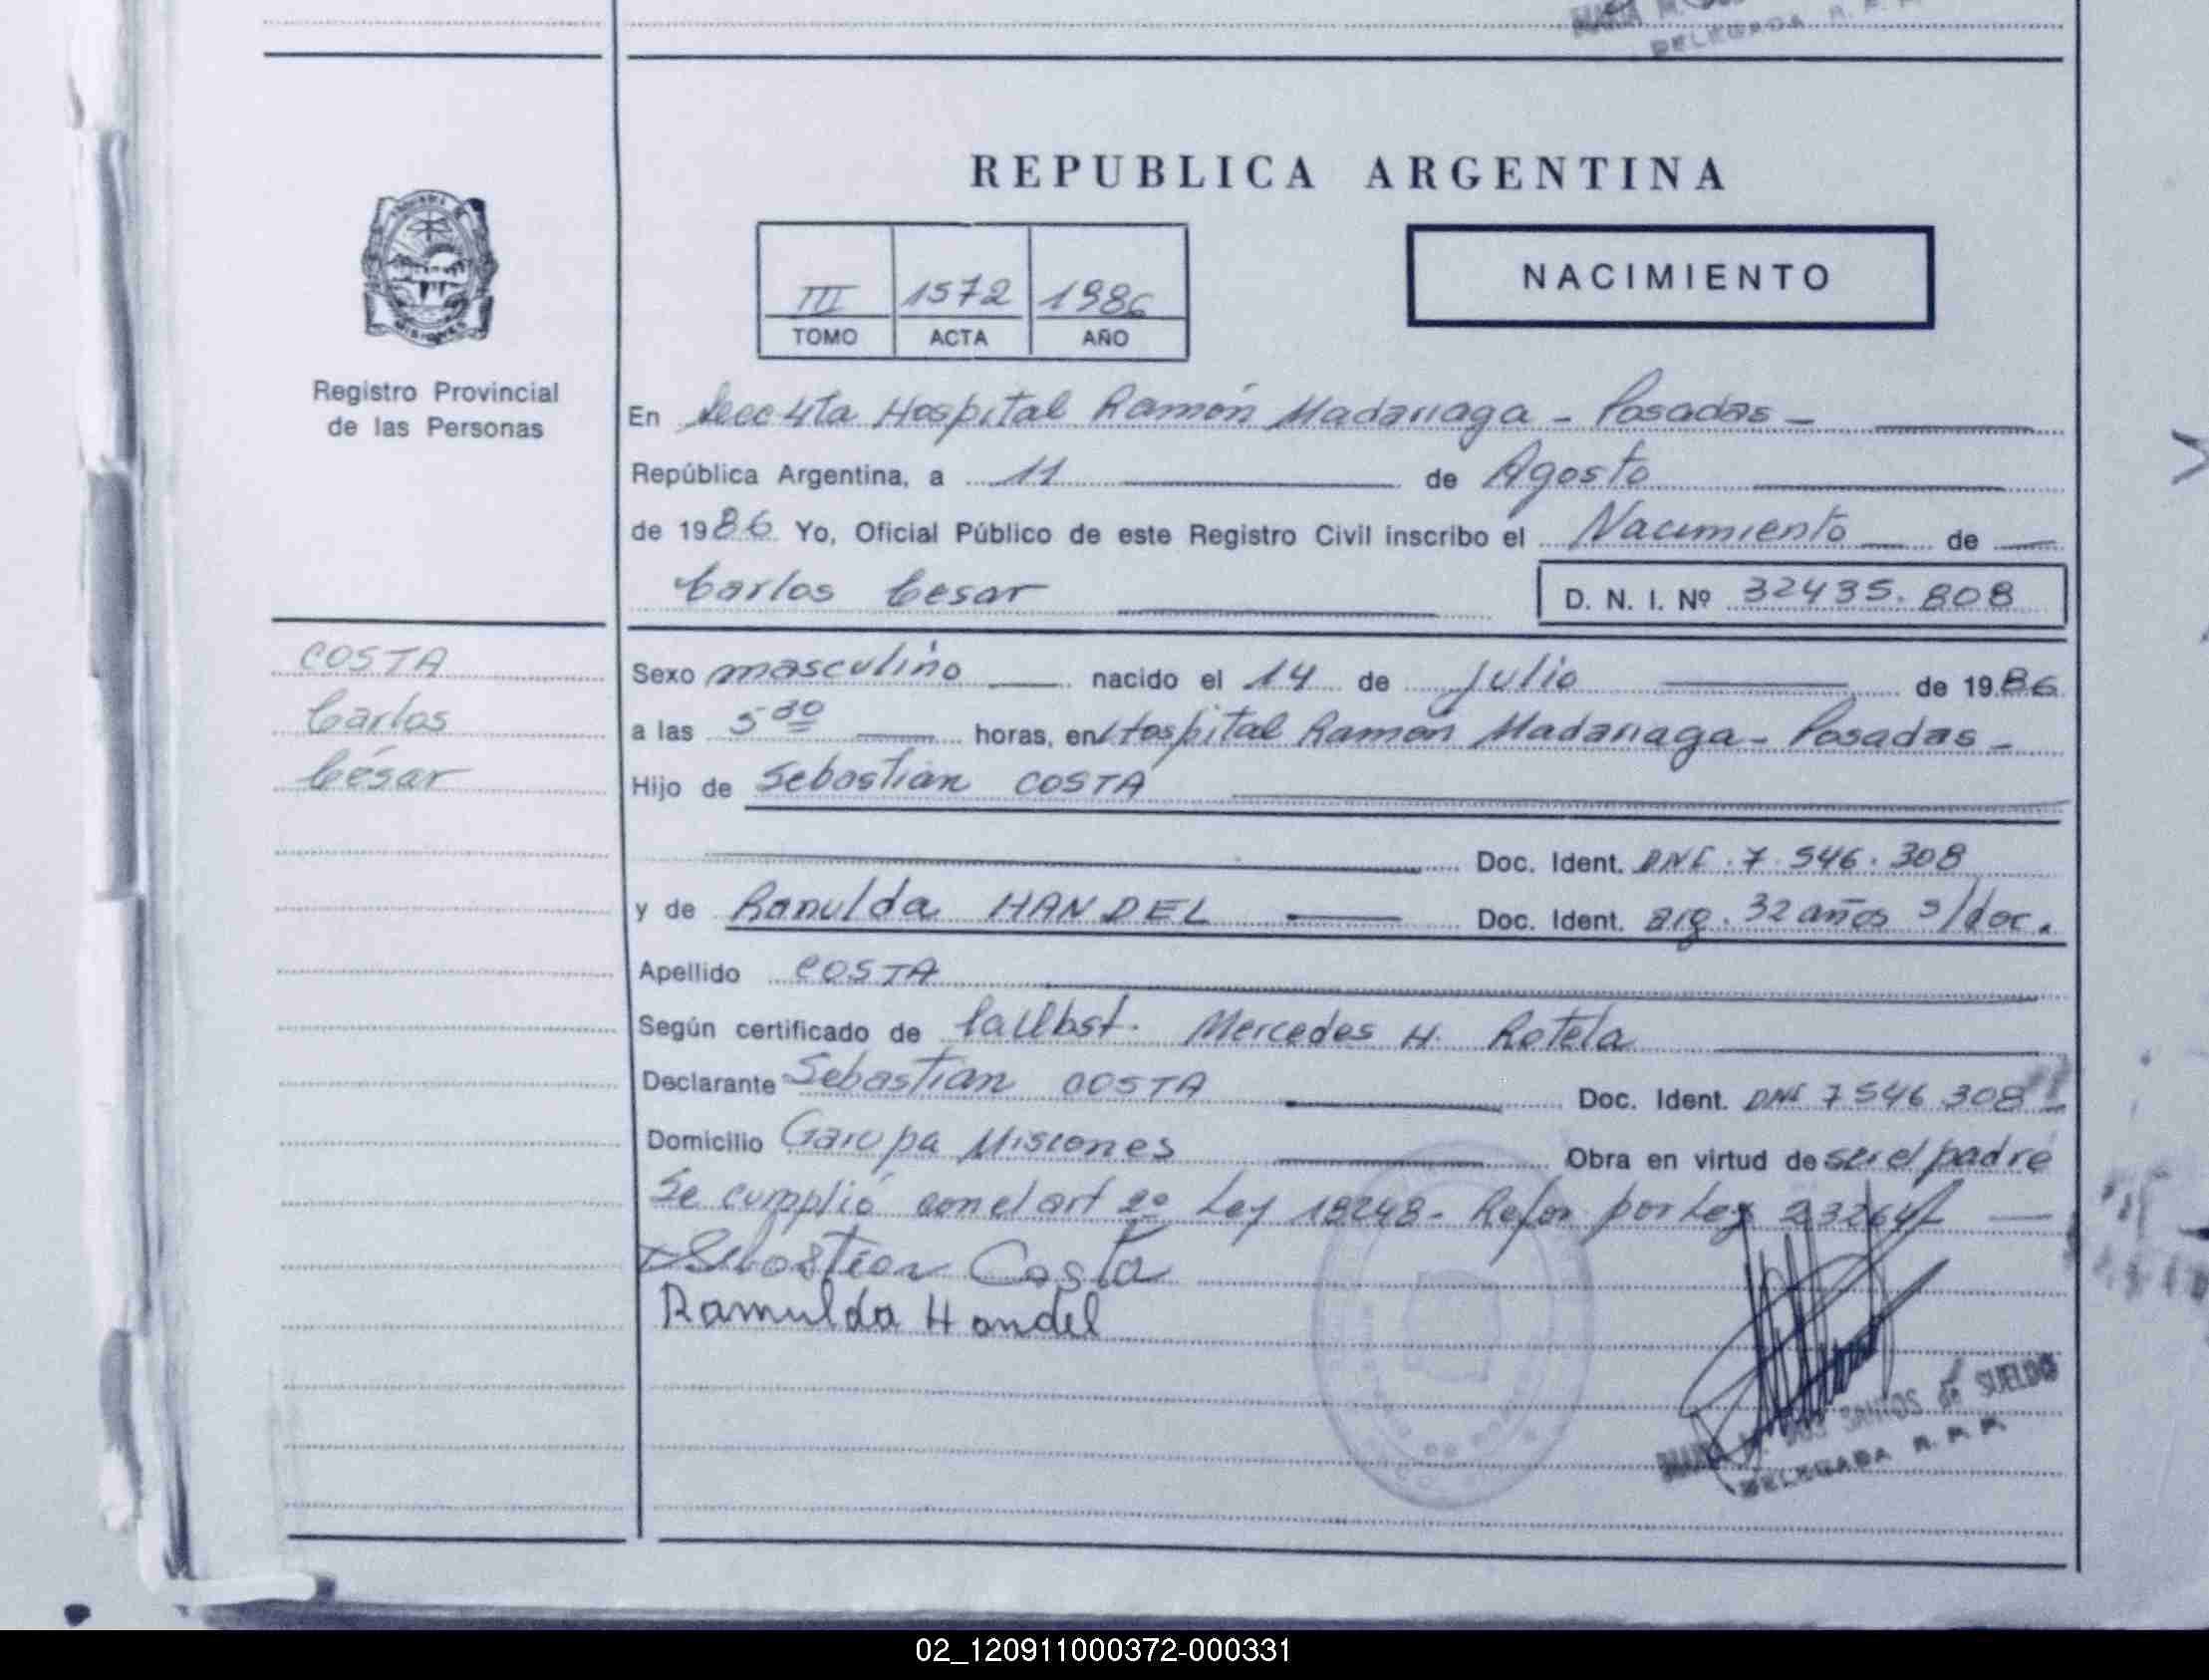 DELEGADA R. P. P.
REPUBLICA ARGENTINA
III 1572 1986
TOMO ACTA AÑO
NACIMIENTO
Registro Provincial
de las Personas
En Secc 4ta Hospital Ramón Madariaga - Posadas -
República Argentina, a 11 de Agosto
de 1986 Yo, Oficial Público de este Registro Civil inscribo el Nacimiento de
Carlos Cesar D. N. I. Nº 32435.808
COSTA
Carlos
César
Sexo masculino nacido el 14 de Julio de 1986
a las 5 30 horas, en Hospital Ramón Madariaga - Posadas -
Hijo de Sebastian COSTA
Doc. Ident. DNI. 7.546.308
y de Ramulda HANDEL Doc. Ident. arg. 32 años s/doc.
Apellido COSTA
Según certificado de Mercedes H. Rotela
Declarante Sebastian COSTA Doc. Ident. DNI 7546 308
Domicilio Garupa Misiones Obra en virtud de ser el padre
Se cumplió con el art 2º Ley 18248 - Refor por Ley 23264
Sebastian Costa
Ramulda Handel
DOS SANTOS de SUELDO
DELEGADA R. P. P.
02_120911000372-000331